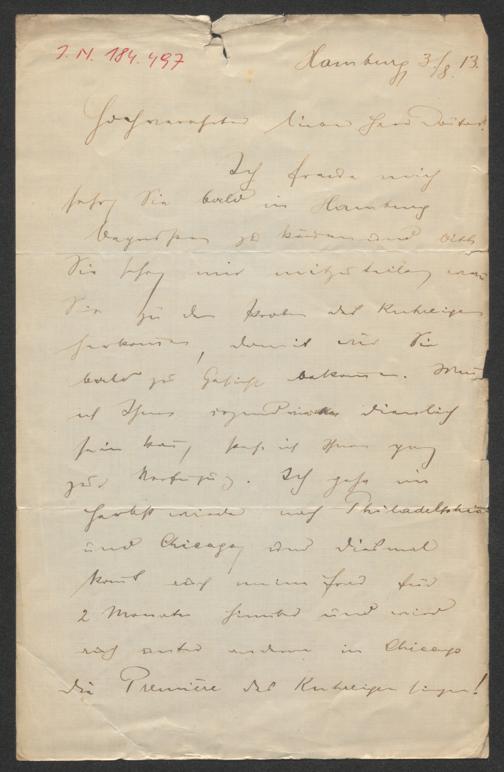 I. N. 184.497
Hamburg 3./8. 13.
Hochverehrter lieber Herr Doktor!
Ich freue mich
sehr Sie bald in Hamburg
begrüssen zu können und bitte
Sie sehr mir mitzuteilen wann
Sie zu den Proben des Kuhreigen
herkommen, damit wir Sie
bald zu Gesicht bekommen. Wenn
ich Ihnen irgendwie dienlich
sein kann, stehe ich Ihnen ganz
zur Verfügung. Ich gehe im
Herbst wieder nach Philadelphia
und Chicago, und diesmal
kommt auch meine Frau für
2 Monate hinüber und wird
auch unter anderem in Chicago
die Première des Kuhreigen singen!